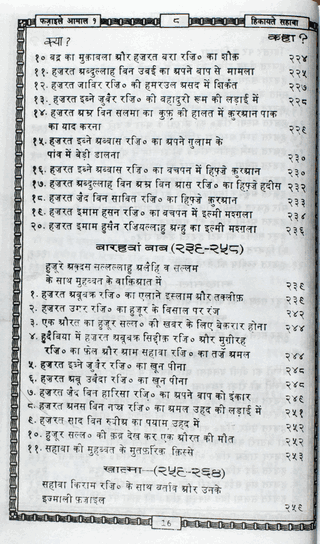 फ़ज़ाइले आमाल १ ८ हिकायाते सहाबा
क्या ? कहां ?
१० बद्र का मुक़ाबला और हज़रत बरा रज़ि० का शौक़ २२४
११. हज़रत अब्दुल्लाह बिन उबई का अपने बाप से मामला २२५
१२. हज़रत जाबिर रज़ि० की हमरउल असद में शिर्कत २२७
१३. हज़रत इब्ने जुबैर रज़ि० की बहादुरी रूम की लड़ाई में २२८
१४. हज़रत अम्र बिन सलमा का कुफ़्र की हालत में क़ुरआन पाक
का याद करना २२९
१५. हज़रत इब्ने अब्बास रज़ि० का अपने ग़ुलाम के
पांव में बेड़ी डालना २३०
१६. हज़रत इब्ने अब्बास रज़ि० का बचपन में हिफ़्ज़े क़ुरआन २३०
१७. हज़रत अब्दुल्लाह बिन अम्र बिन आस रज़ि० का हिफ़्ज़े हदीस २३२
१८. हज़रत ज़ैद बिन साबित रज़ि० का हिफ़्ज़े क़ुरआन २३३
१९. हज़रत इमाम हसन रज़ि० का बचपन में इल्मी मशग़ला २३४
२०. हज़रत इमाम हुसैन रज़ियल्लाहु अन्हु का इल्मी मशग़ला २३६
बारहवां बाब (२३९-२५८)
हुज़ूरे अक़्दस सल्लल्लाहु अलैहि व सल्लम
के साथ मुहब्बत के वाक़िआत में २३९
१. हज़रत अबूबक्र रज़ि० का एलाने इस्लाम और तक्लीफ़ २३९
२. हज़रत उमर रज़ि० का हुज़ूर के विसाल पर रंज २४२
३. एक औरत का हुज़ूर सल्ल० की ख़बर के लिए बेक़रार होना २४४
४. हुदैबिया में हज़रत अबूबक्र सिद्दीक़ रज़ि० और मुग़ीरह
रज़ि० का फ़ेल और आम सहाबा रज़ि० का तर्ज़े अमल २४४
५. हज़रत इब्ने जुबैर रज़ि० का ख़ून पीना २४८
६. हज़रत अबू उबैदा रज़ि० का ख़ून पीना २४९
७. हज़रत ज़ैद बिन हारिसा रज़ि० का अपने बाप को इंकार २४९
८. हज़रत अनस बिन नज़्र रज़ि० का अमल उहद की लड़ाई में २५१
९. हज़रत साद बिन रबीअ का पयाम उहद में २५१
१०. हुज़ूर सल्ल० की क़ब्र देख कर एक औरत की मौत २५२
११. सहाबा की मुहब्बत के मुतफ़र्रिक़ क़िस्से २५३
ख़ात्मा (२५९-२६४)
सहाबा किराम रज़ि० के साथ बर्ताव और उनके
इज्माली फ़ज़ाइल २५९
16